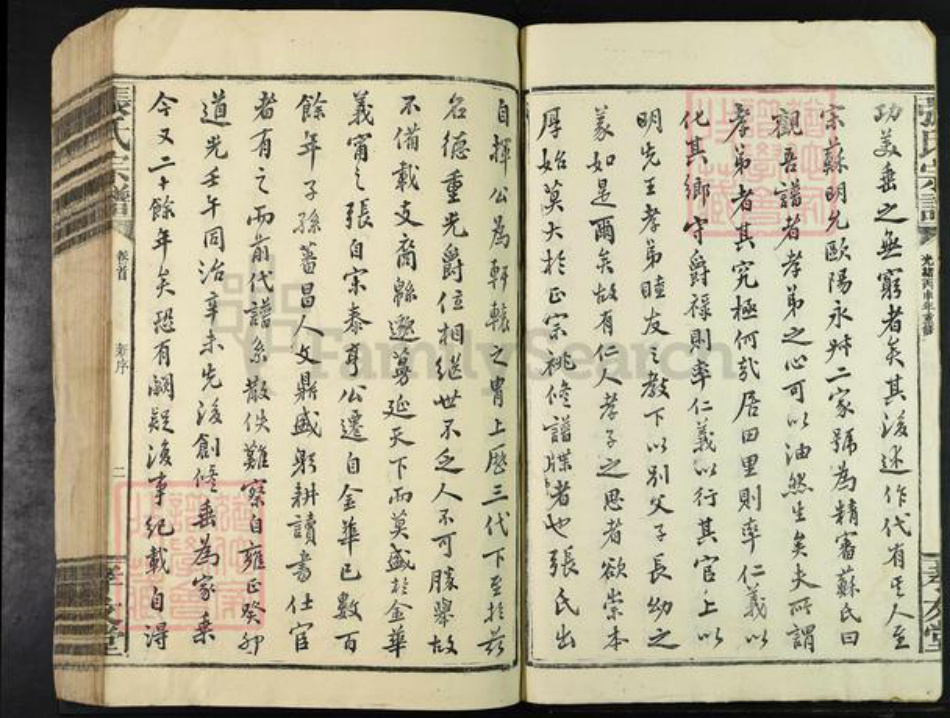 功美垂之無窮者矣其後述作代有其人至
宋蘇明允歐陽永叔二家號為精審蘇氏曰
觀吾譜者孝弟之心可以油然生矣夫所謂
孝弟者其究極何哉居田里則率仁義以
化其鄉守爵祿則率仁義以行其官上以
明先王孝弟睦友之教下以別父子長幼之
義如是爾矣故有仁人孝子之思者欲崇本
厚始莫大於正宗祧修譜牒者也張氏出
自揮公為軒轅之胄上歷三代下至於茲
名德重光爵位相繼世不乏人不可勝舉故
不備載支裔緜邈蔓延天下而莫盛於金華
義甯之張自宋泰亨公遷自金華已數百
餘年子孫蕃昌人文鼎盛躬耕讀書仕宦
者有之而前代譜系散佚難察自雍正癸卯
道光壬午同治辛未先後創修垂為家乘
今又二十餘年矣恐有闕疑後事紀載自得
張氏宗譜
卷首
序
二
張氏宗譜
光緒丙申年重修
孝友堂
孝友堂
FamilySearch